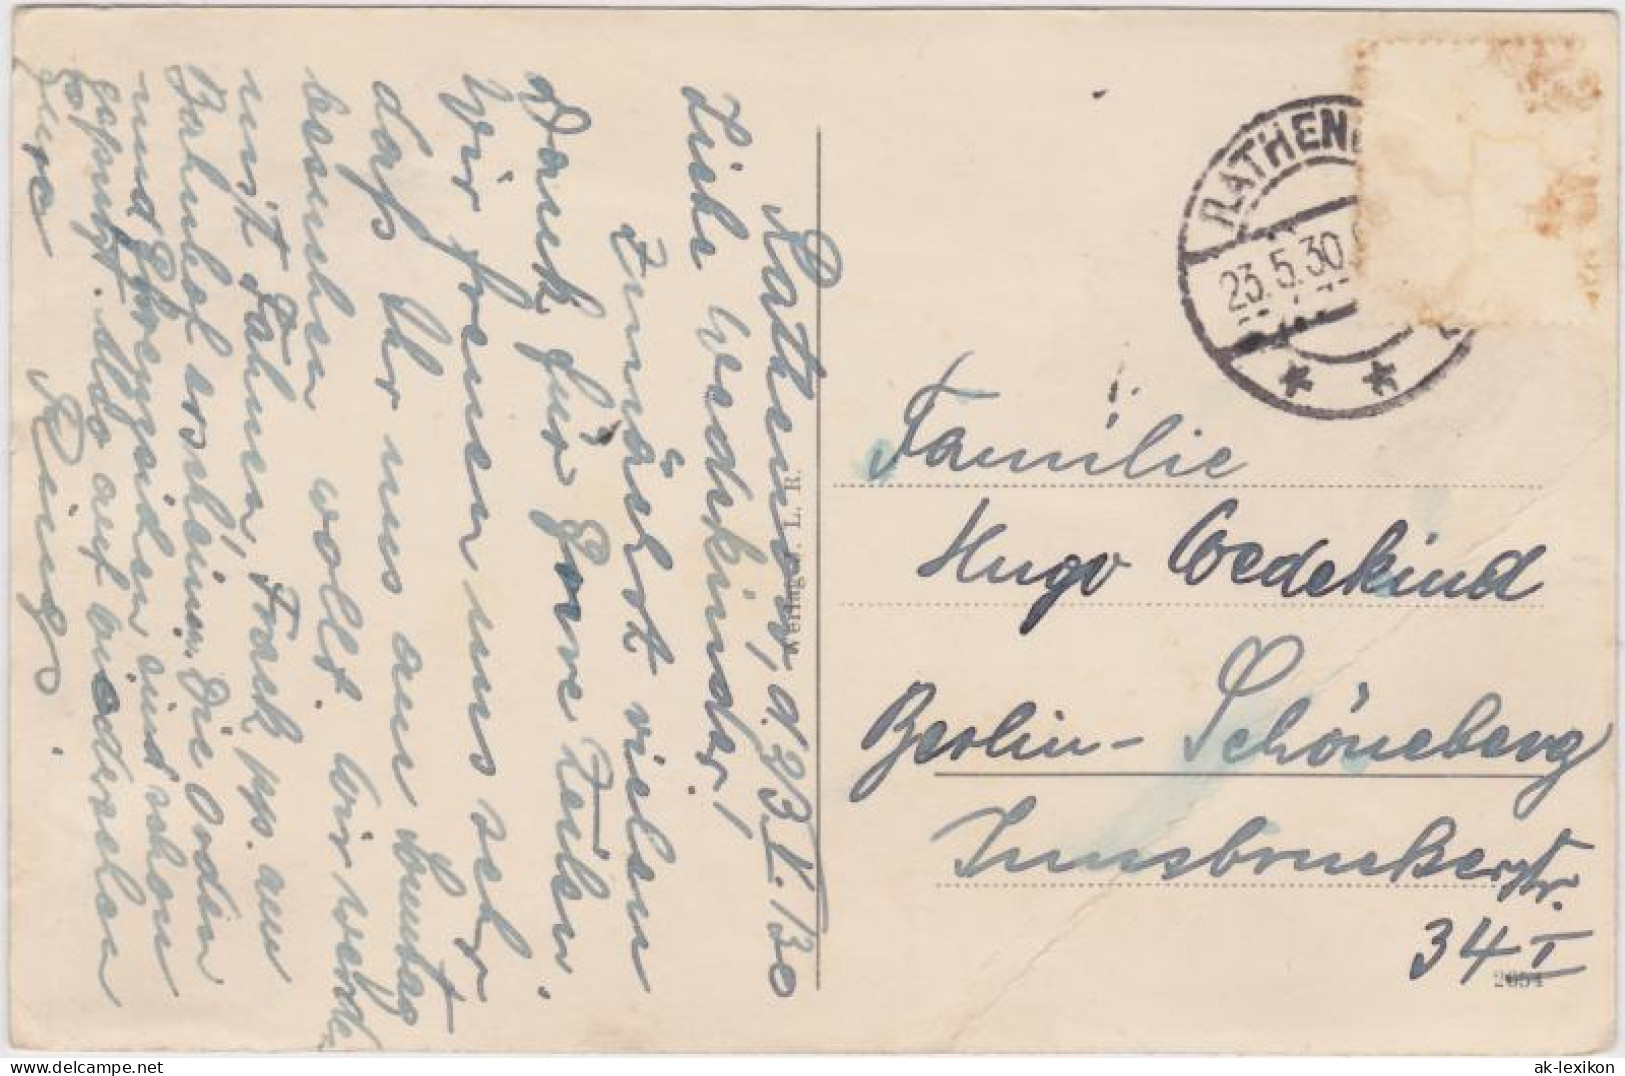 Rathenow, d. 23.V.1930
Liebe Wedekinder!
Zunächst vielen
Dank für Eure Zeilen.
Wir freuen uns sehr
daß Ihr uns am Sonntag
besuchen wollt. Wir werden
mit Fahnen, Frack pp. am
Bahnhof erscheinen. Die Orden
und Ehrenzeichen sind schon
geputzt. Also auf Wiedersehen
Eure
Rings.
RATHEN
23.5.30
* *
Familie
Hugo Wedekind
Berlin-Schöneberg
Innsbruckerstr.
34 I
2654
Verlag: L. R.
ak-lexikon